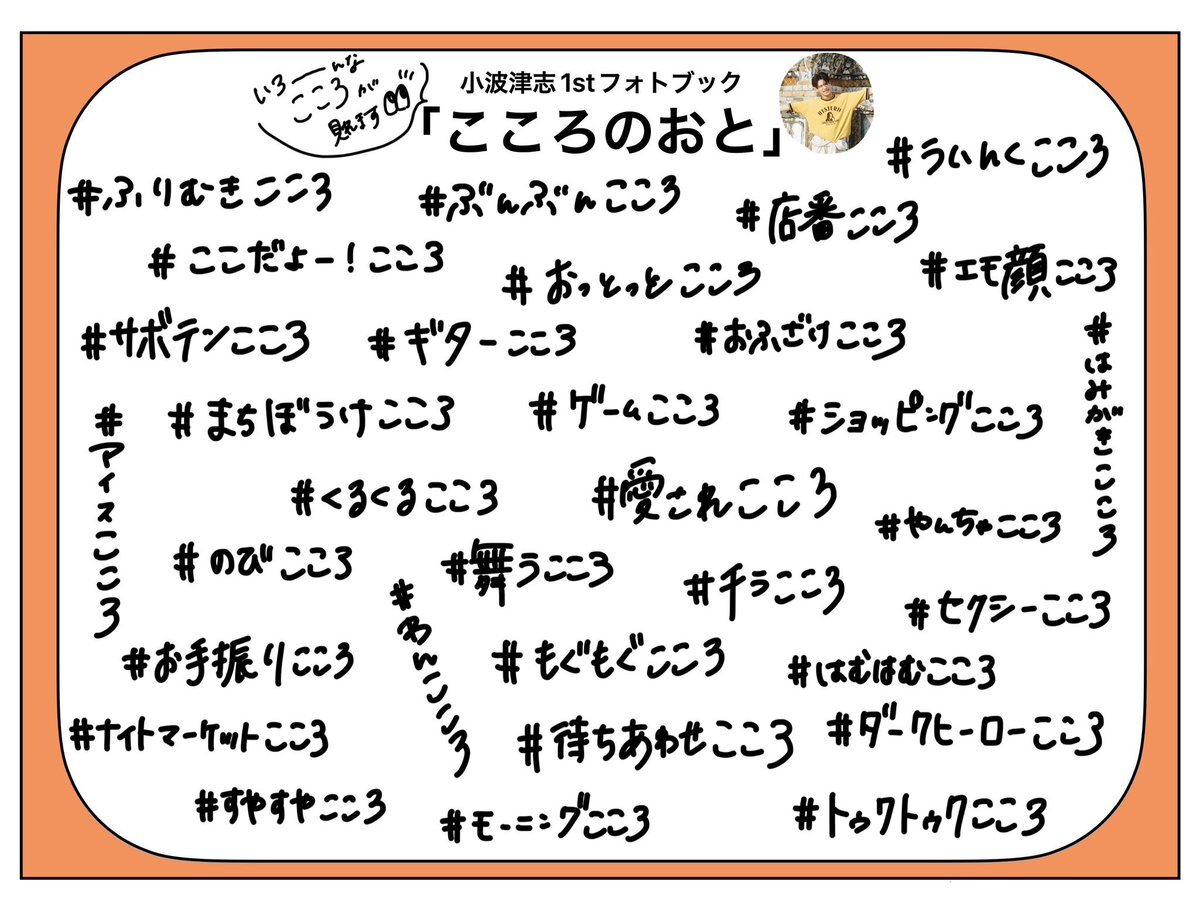 いろーんな
こころが
見れます
小波津志1stフォトブック
「こころのおと」
#うぃんくこころ
#ふりむきこころ
#ぶんぶんこころ
#店番こころ
#ここだよー!こころ
#おっとっとこころ
#エモ顔こころ
#サボテンこころ
#ギターこころ
#おふざけこころ
#はみがきこころ
#アイスこころ
#まちぼうけこころ
#ゲームこころ
#ショッピングこころ
#くるくるこころ
#愛されこころ
#やんちゃこころ
#のびこころ
#舞うこころ
#チラこころ
#セクシーこころ
#わんこころ
#お手振りこころ
#もぐもぐこころ
#はむはむこころ
#ナイトマーケットこころ
#待ちあわせこころ
#ダークヒーローこころ
#すやすやこころ
#モーニングこころ
#トゥクトゥクこころ